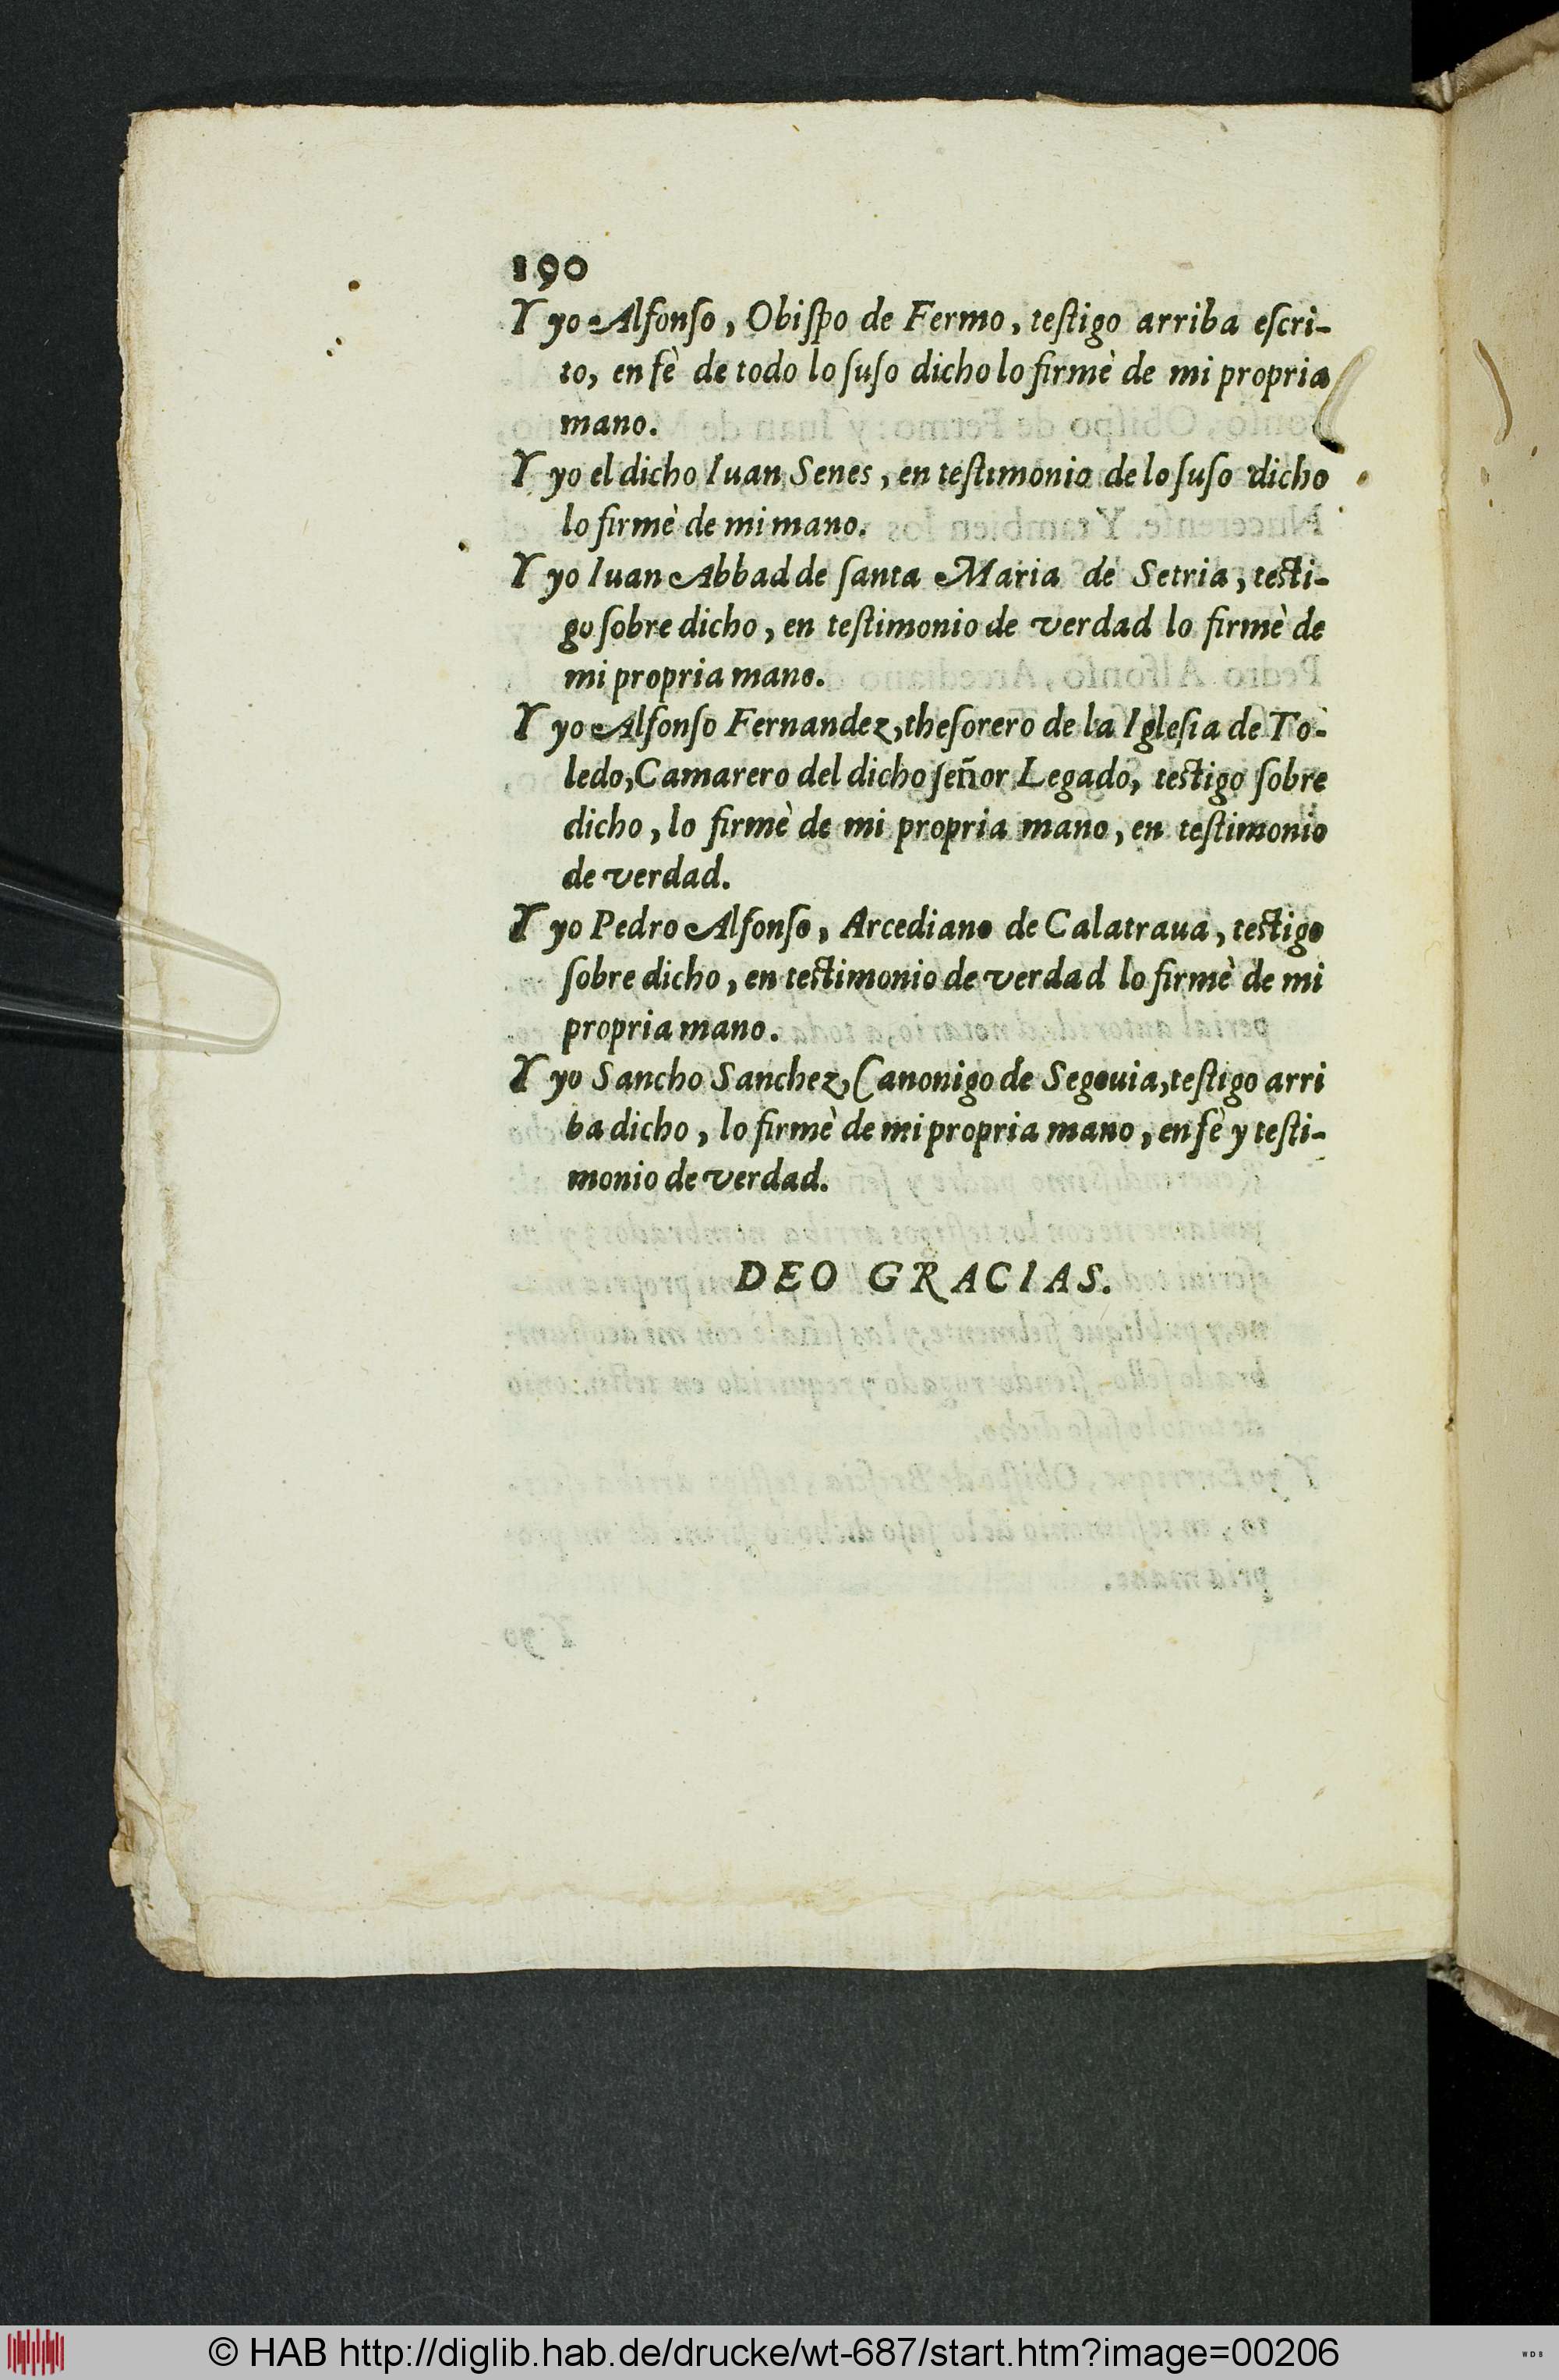 190
Y yo Alfonſo, Obiſpo de Fermo, teſtigo arriba eſcri-
to, en fè de todo lo ſuſo dicho lo firmè de mi propria
mano.
Y yo el dicho Iuan Senes, en teſtimonio de lo ſuſo dicho
lo firmè de mi mano.
Y yo Iuan Abbad de ſanta Maria de Setria, teſti-
go ſobre dicho, en teſtimonio de verdad lo firmè de
mi propria mano.
Y yo Alfonſo Fernandez, theſorero de la Igleſia de To-
ledo, Camarero del dicho ſeñor Legado, teſtigo ſobre
dicho, lo firmè de mi propria mano, en teſtimonio
de verdad.
Y yo Pedro Alfonſo, Arcediano de Calatraua, teſtigo
ſobre dicho, en teſtimonio de verdad lo firmè de mi
propria mano.
Y yo Sancho Sanchez, Canonigo de Segouia, teſtigo arri
ba dicho, lo firmè de mi propria mano, en fè y teſti-
monio de verdad.
DEO GRACIAS.
© HAB http://diglib.hab.de/drucke/wt-687/start.htm?image=00206
WDB